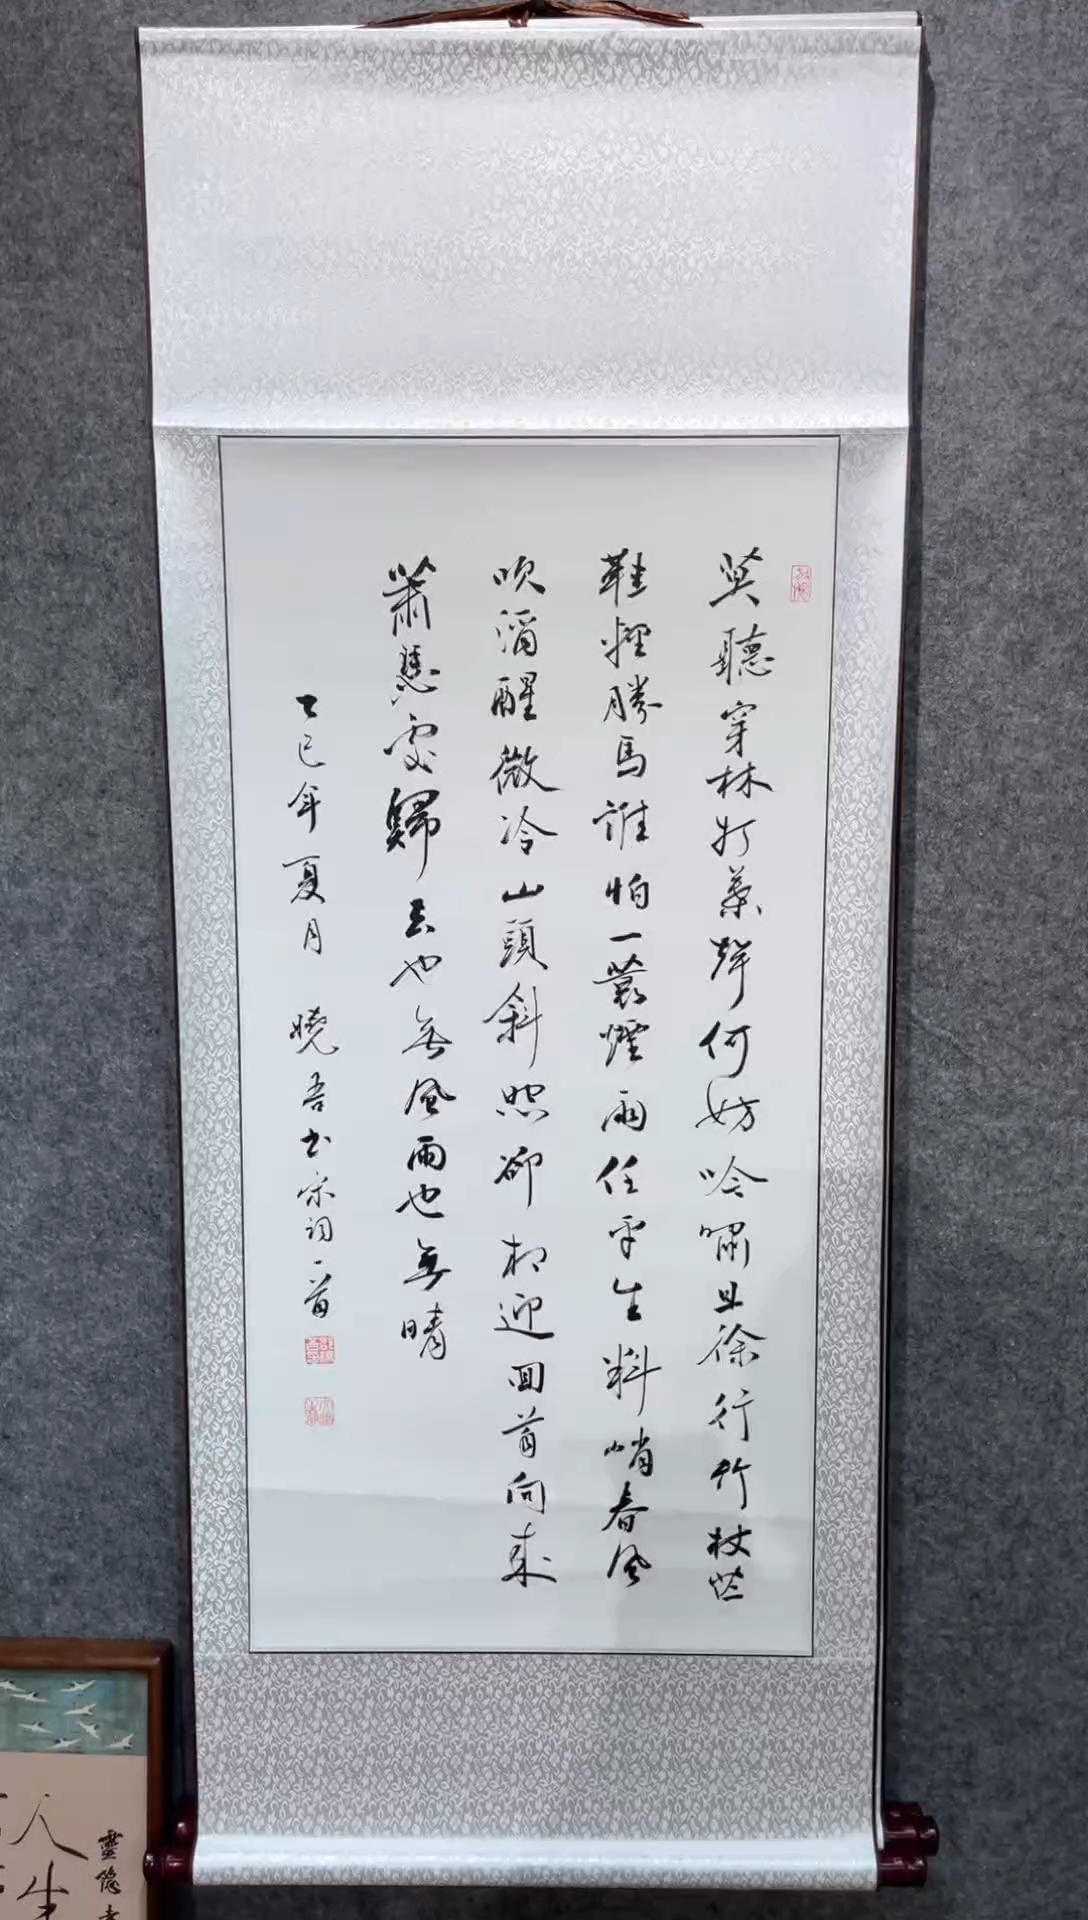 莫聽穿林打葉聲何妨吟嘯且徐行竹杖芒
鞋輕勝馬誰怕一蓑煙雨任平生料峭春風
吹酒醒微冷山頭斜照卻相迎囬首向來
蕭瑟處歸去也無風雨也無晴
乙巳年夏月 吾书宋詞一首
靈隱
人生